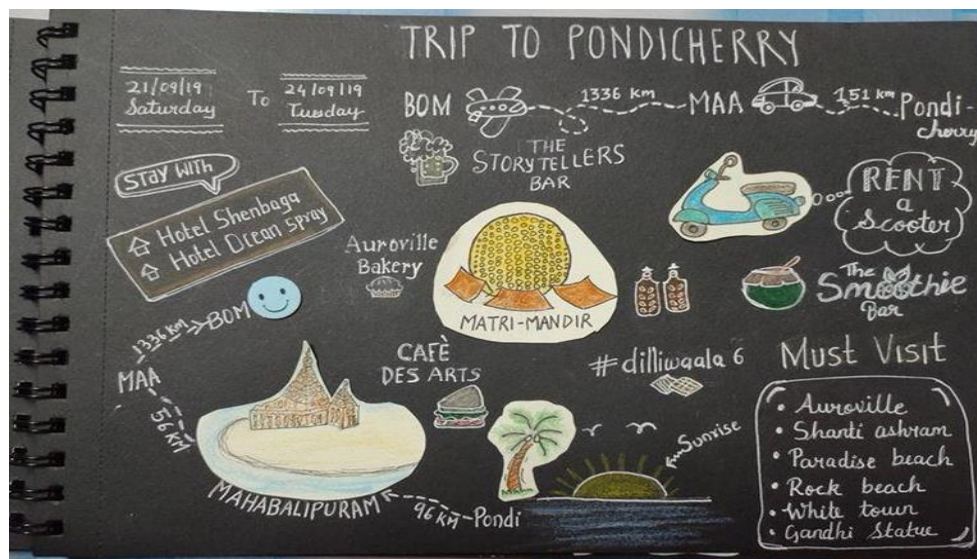 TRIP TO PONDICHERRY
21/09/19
Saturday
To
24/09/19
Tuesday
BOM
1336 KM
MAA
151 km
Pondi
cherry
THE
STORYTELLERS
BAR
STAY WITH
Hotel Shenbaga
Hotel Ocean Spray
RENT
a
Scooter
Auroville
Bakery
MATRI-MANDIR
The
Smoothie
Bar
BOM
1336 KM
MAA
56 KM
CAFÈ
DES ARTS
#dilliwaala 6
Must Visit
• Auroville
• Shanti ashram
• Paradise beach
• Rock beach
• White town
• Gandhi Statue
Sunrise
MAHABALIPURAM
96 KM
Pondi